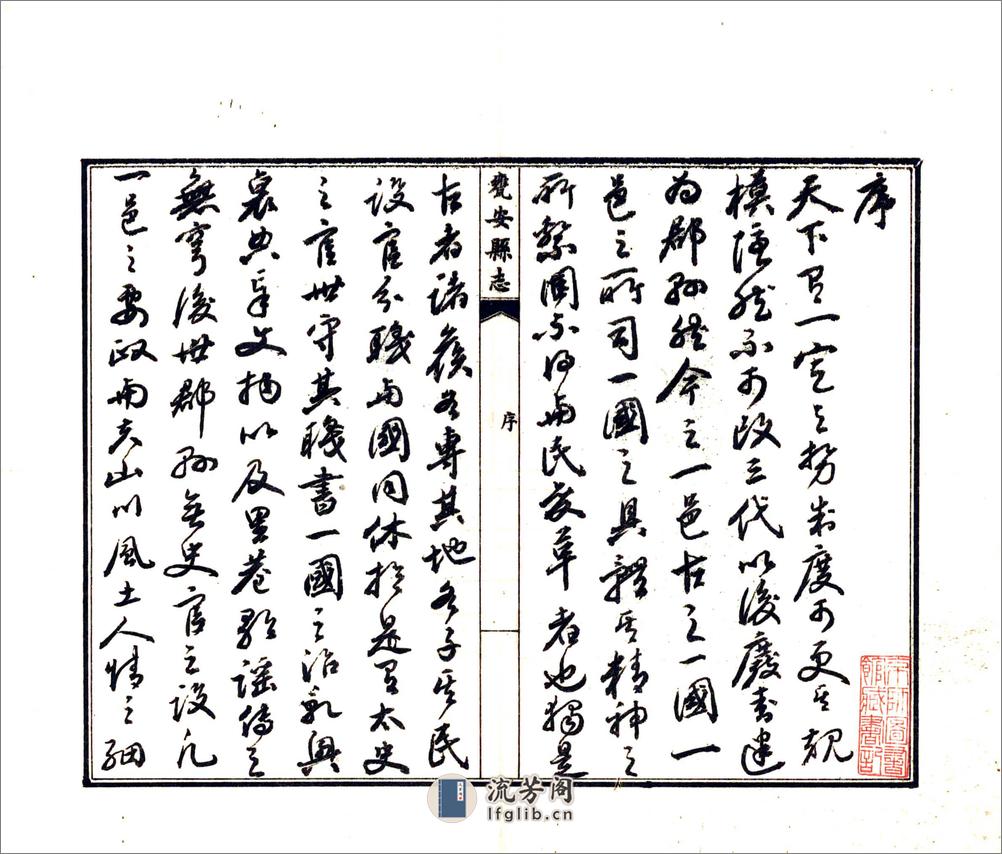 序
天下有一定之勢制度可更其規
模法然不可改三代以後廢封建
為郡縣然今之一邑古之一國一
邑之所司一國之具體其精神之
所繫固不得與民變革者也獨是
甕安縣志
序
古者諸侯各專其地各子其民
設官分職與國同休於是有太史
之官世守其職書一國之治亂興
衰典章文物以及里巷歌謠傳之
無窮後世郡縣無史官之設凡
一邑之要政與夫山川風土人情之細
流芳阁
lfglib.cn